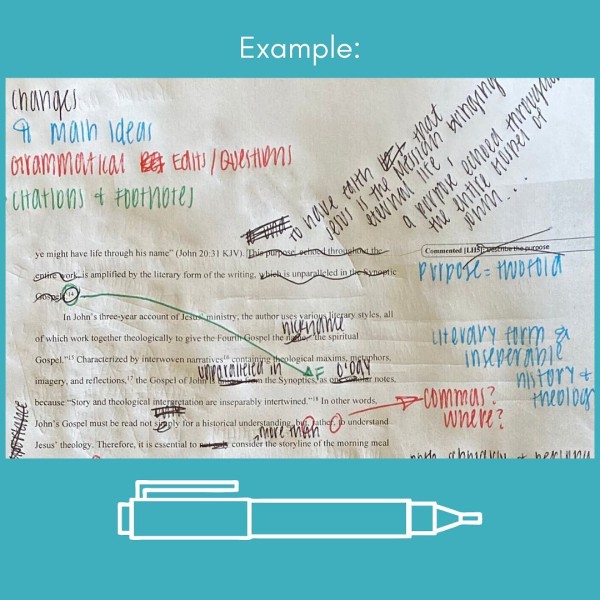 Example:
changes
¶ main ideas
Grammatical Edits/Questions
citations & Footnotes
to have faith that
Jesus is the Messiah bringing
eternal life,
a purpose echoed throughout
the entire Gospel of
John...
ye might have life through his name” (John 20:31 KJV). This purpose, echoed throughout the
entire work, is amplified by the literary form of the writing, which is unparalleled in the Synoptic
Gospels.14
Commented [LH5]: Describe the purpose
purpose = twofold
In John’s three-year account of Jesus’ ministry, the author uses various literary styles, all
nickname
of which work together theologically to give the Fourth Gospel the name, the spiritual
Gospel.”15 Characterized by interwoven narratives16 containing theological maxims, metaphors,
unparalleled in
O'Day
imagery, and reflections,17 the Gospel of John is from the Synoptics, as one scholar notes,
because “Story and theological interpretation are inseparably intertwined.”18 In other words,
John’s Gospel must be read not simply for a historical understanding, but, rather, to understand
more than
Jesus’ theology. Therefore, it is essential to not only consider the storyline of the morning meal
Literary form &
inseperable
history &
theology
commas?
where?